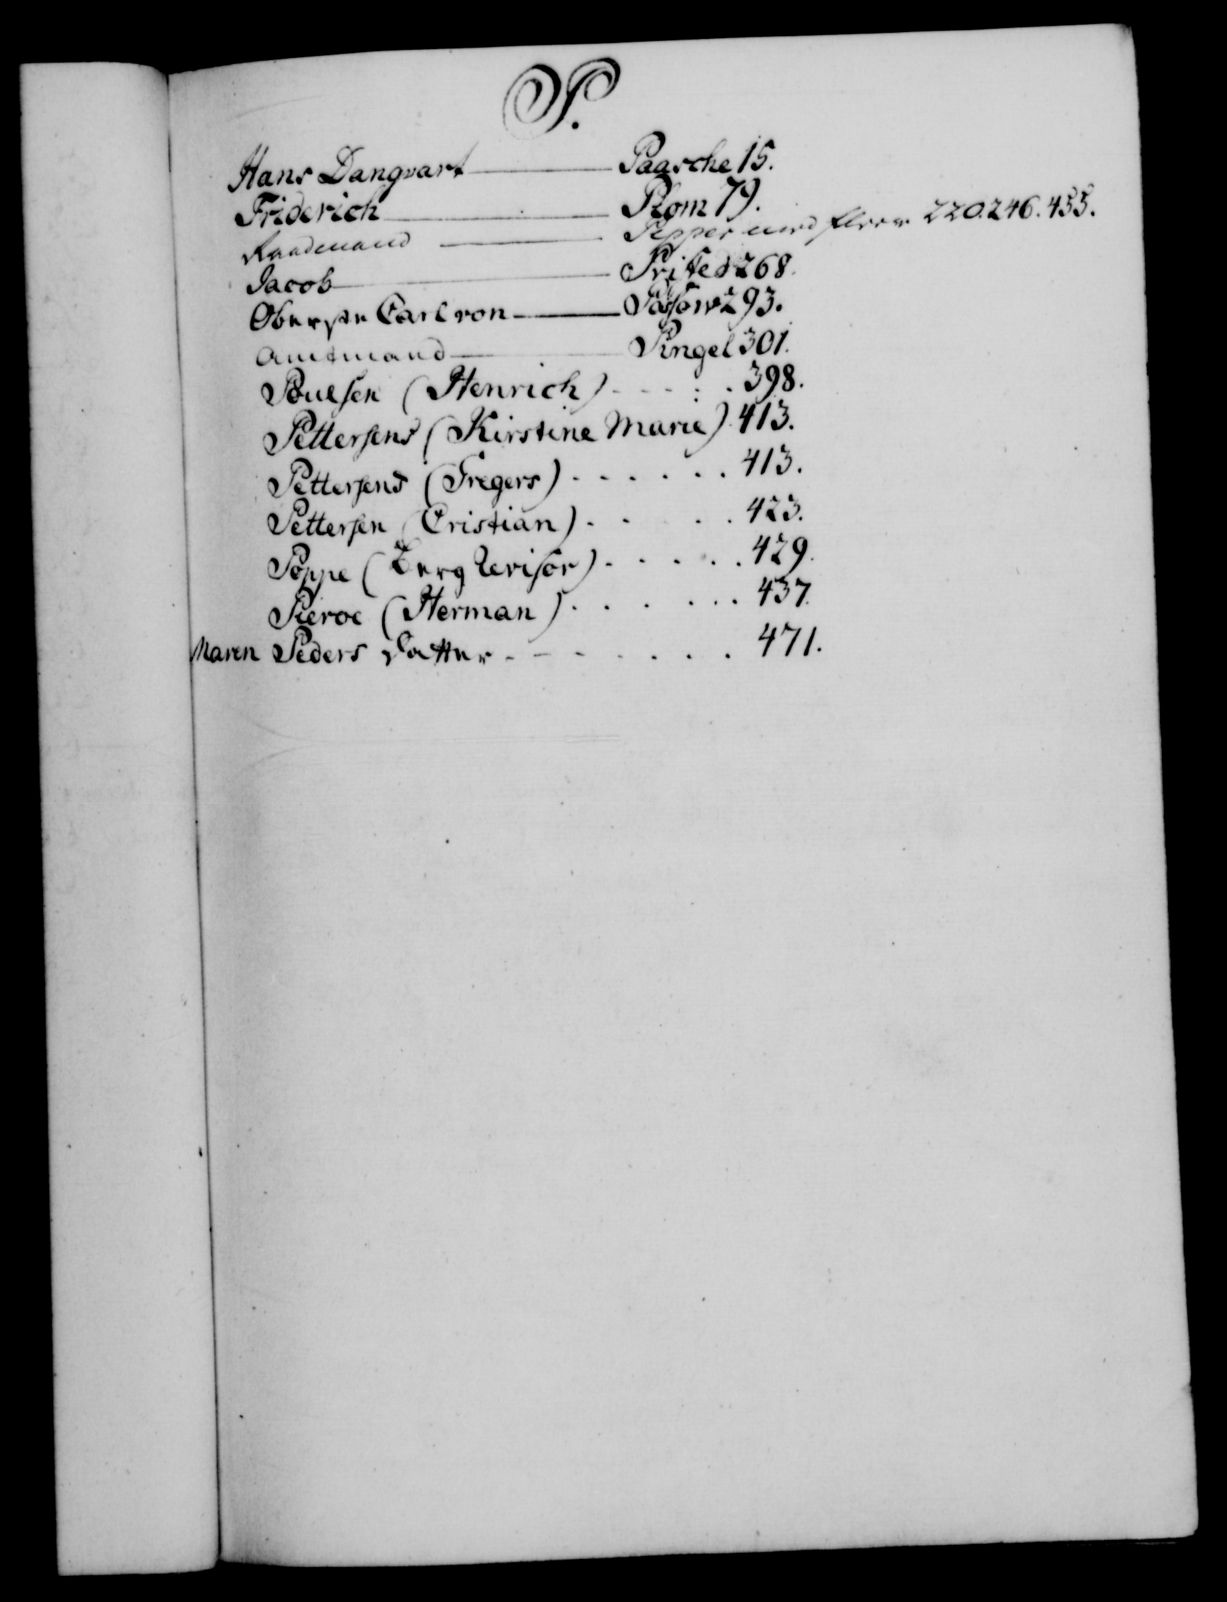 P.
Hans Dangvart — Paasche 15.
Friderich — Plom 79.
Raadmand — Pepper med fleere 220. 246. 455.
Jacob — 268.
Oberste Carl von — Passow 293.
Amtmand — Pingel 301.
Poulsen (Henrich) - - - : . 398.
Pettersens (Kirstine Marie) 413.
Pettersens (Gregers) . . . . . . 413.
Pettersen (Cristian) . . . . . 423.
Poppe (Berg Revisor) . . . . . . 429.
(Herman) . . . . . . 437.
Maren Peders Datter . - - - . . . . 471.